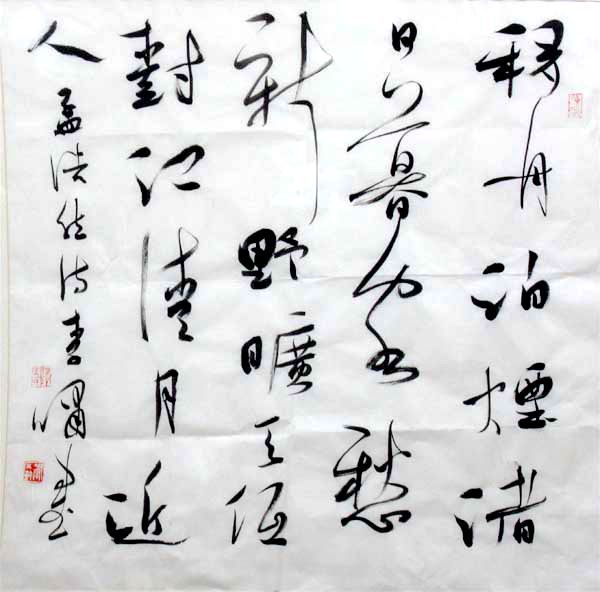 移舟泊煙渚
日暮客愁
新野曠天低
樹江清月近
人孟浩然詩嘯書